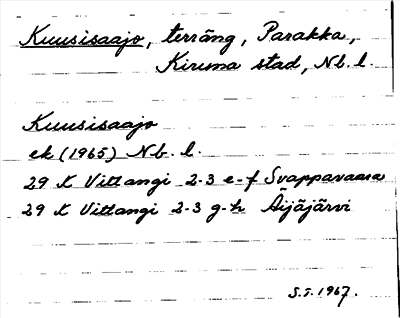 Kuusisaajo, terräng, Parakka,
Kiruna stad, Nb. l.
Kuusisaajo
ek (1965) Nb. l.
29 K Vittangi 2-3 e-f Svappavaara
29 K Vittangi 2-3 g-h Äijäjärvi
S.S. 1967.